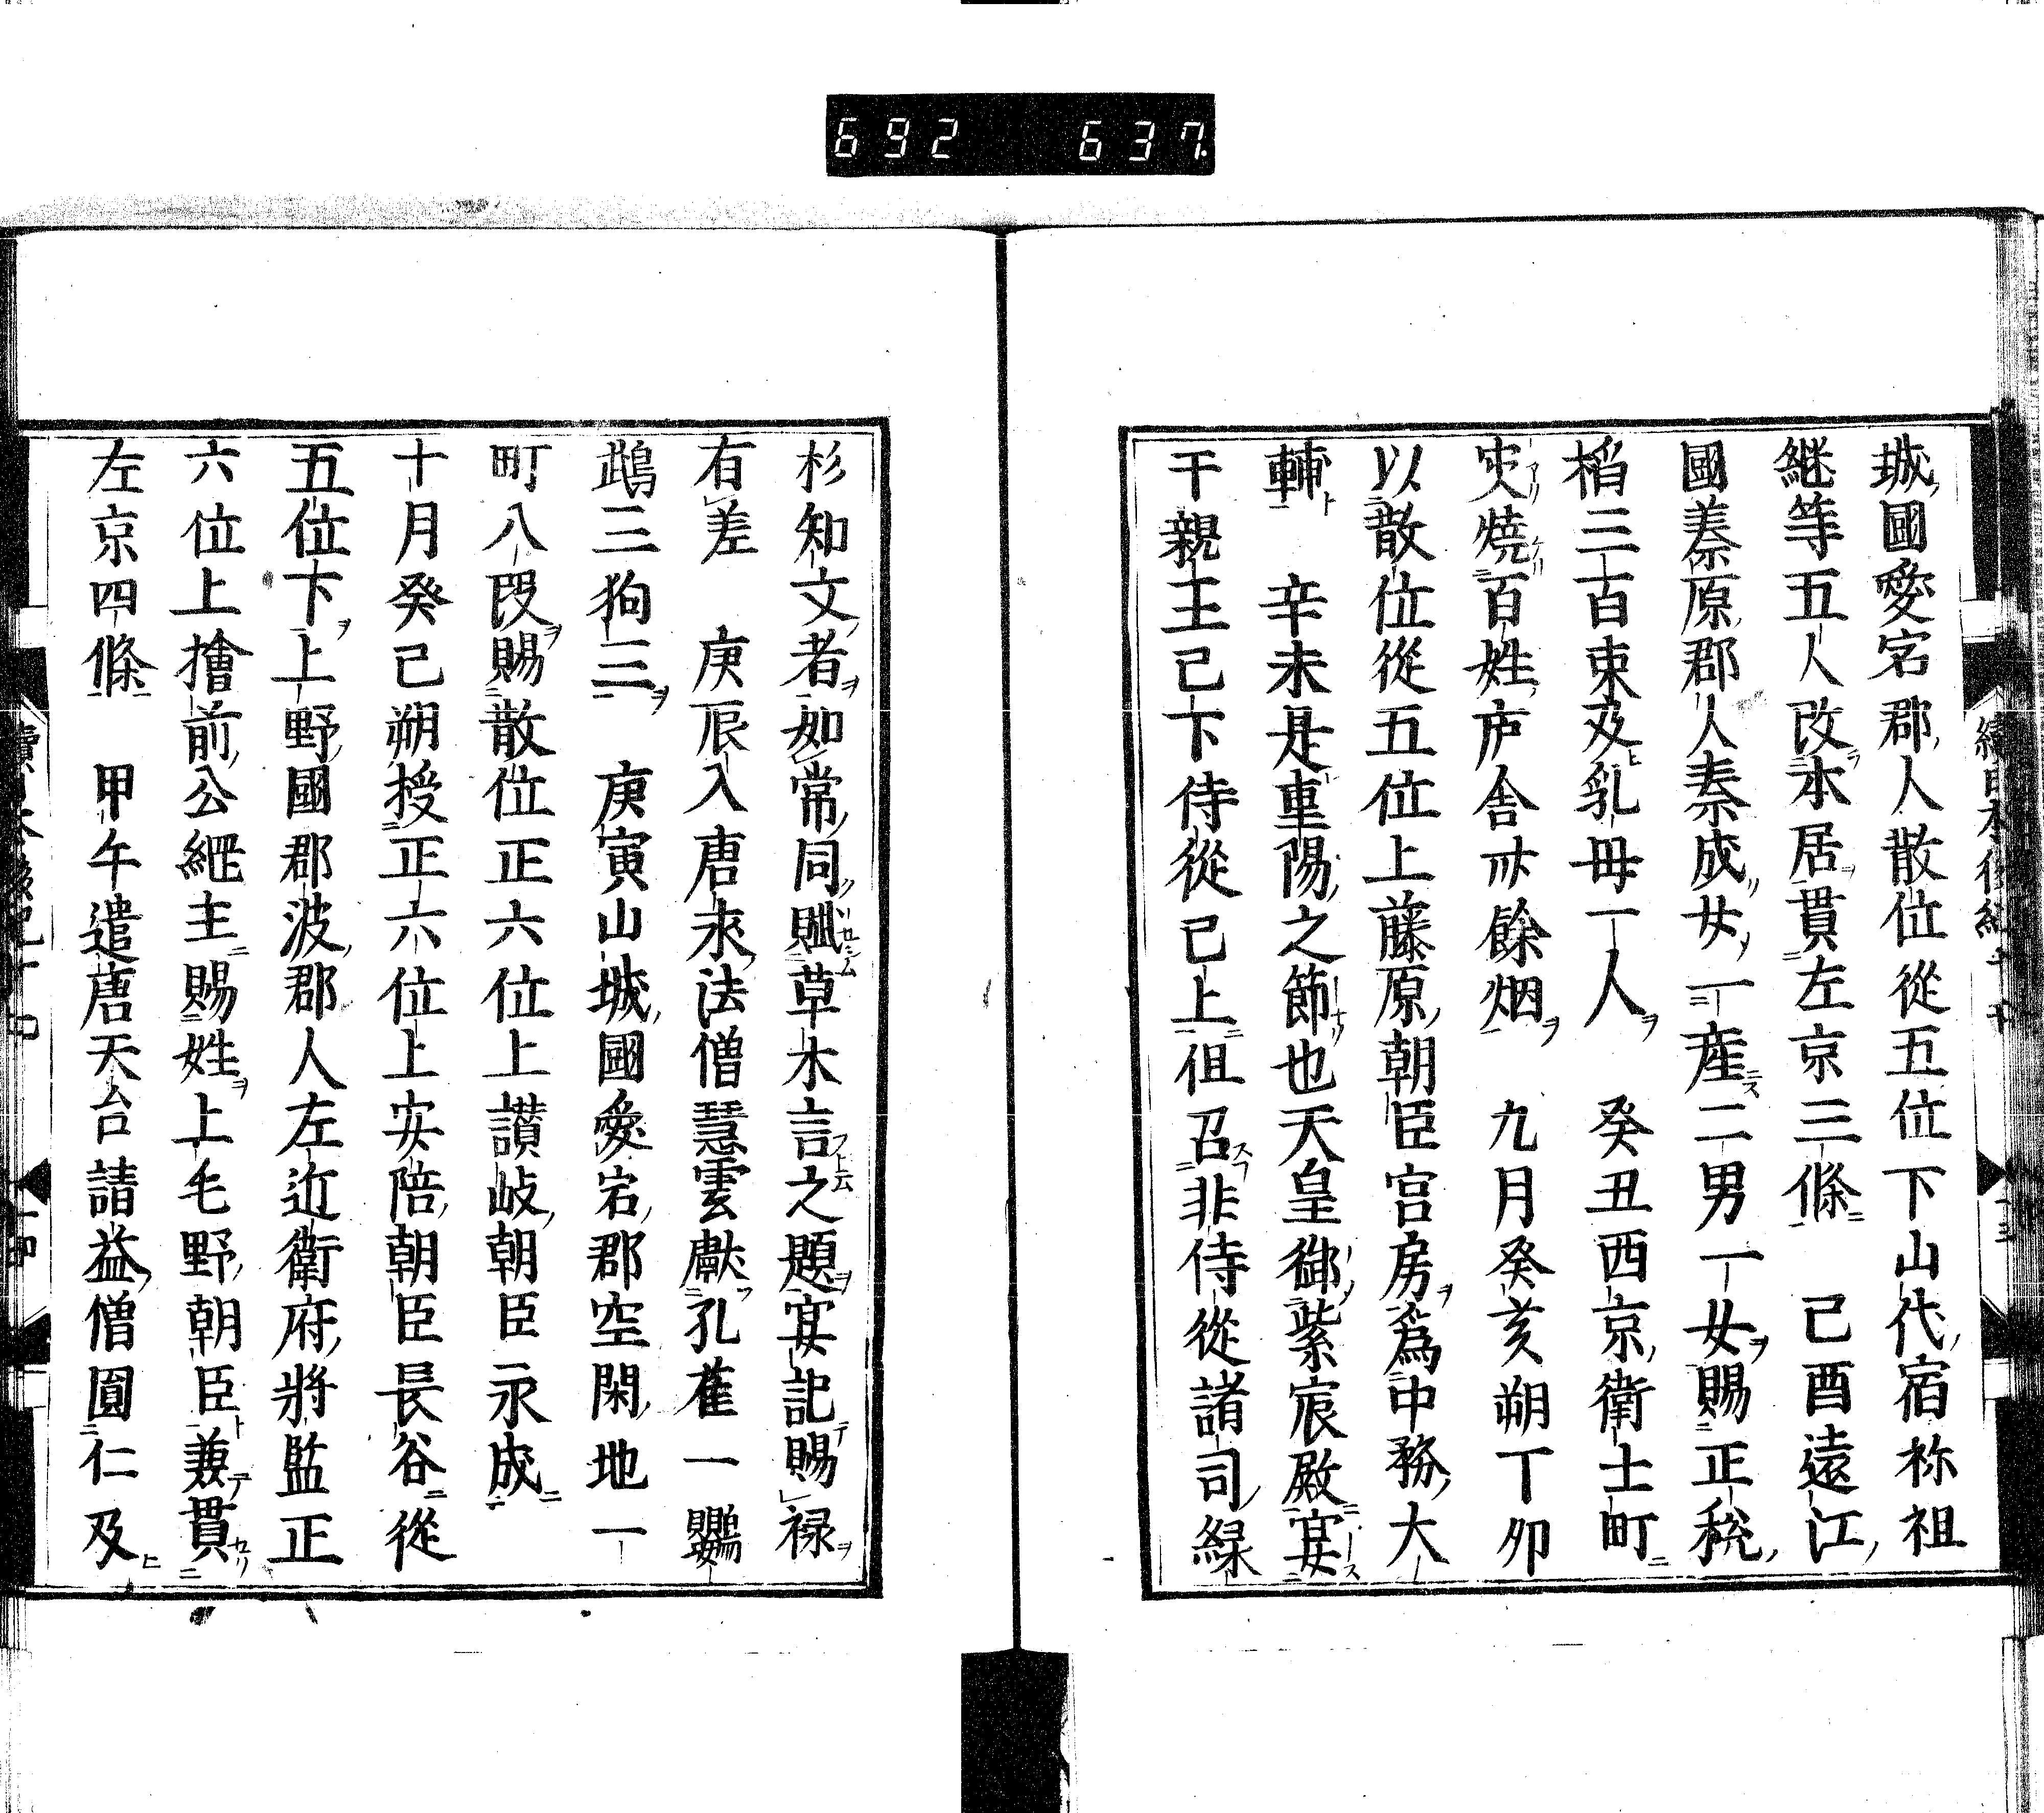 692 637
城國愛宕郡人散位從五位下山代宿祢祖
継等五人改本居貫左京三條 己酉遠江
國蓁原郡人秦成女一産二男一女賜正税
稲三百束及乳母一人 癸丑西京衛士町
灾燒百姓庐舎卅餘烟 九月癸亥朔丁卯
以散位從五位上藤原朝臣宮房爲中務大
輔 辛未是重陽之節也天皇御紫宸殿宴
干親王已下侍從已上但召非侍從諸司緑
杉知文者如常同賦草木言之題宴訖賜禄
有差 庚辰入唐求法僧慧雲獻孔雀一鸚
鵡三狗三 庚寅山城國愛宕郡空閑地一
町八段賜散位正六位上讃岐朝臣永成
十月癸巳朔授正六位上安陪朝臣長谷從
五位下上野國郡波郡人左近衛府將監正
六位上檜前公綖主賜姓上毛野朝臣兼貫
左京四條 甲午遣唐天台請益僧圓仁及